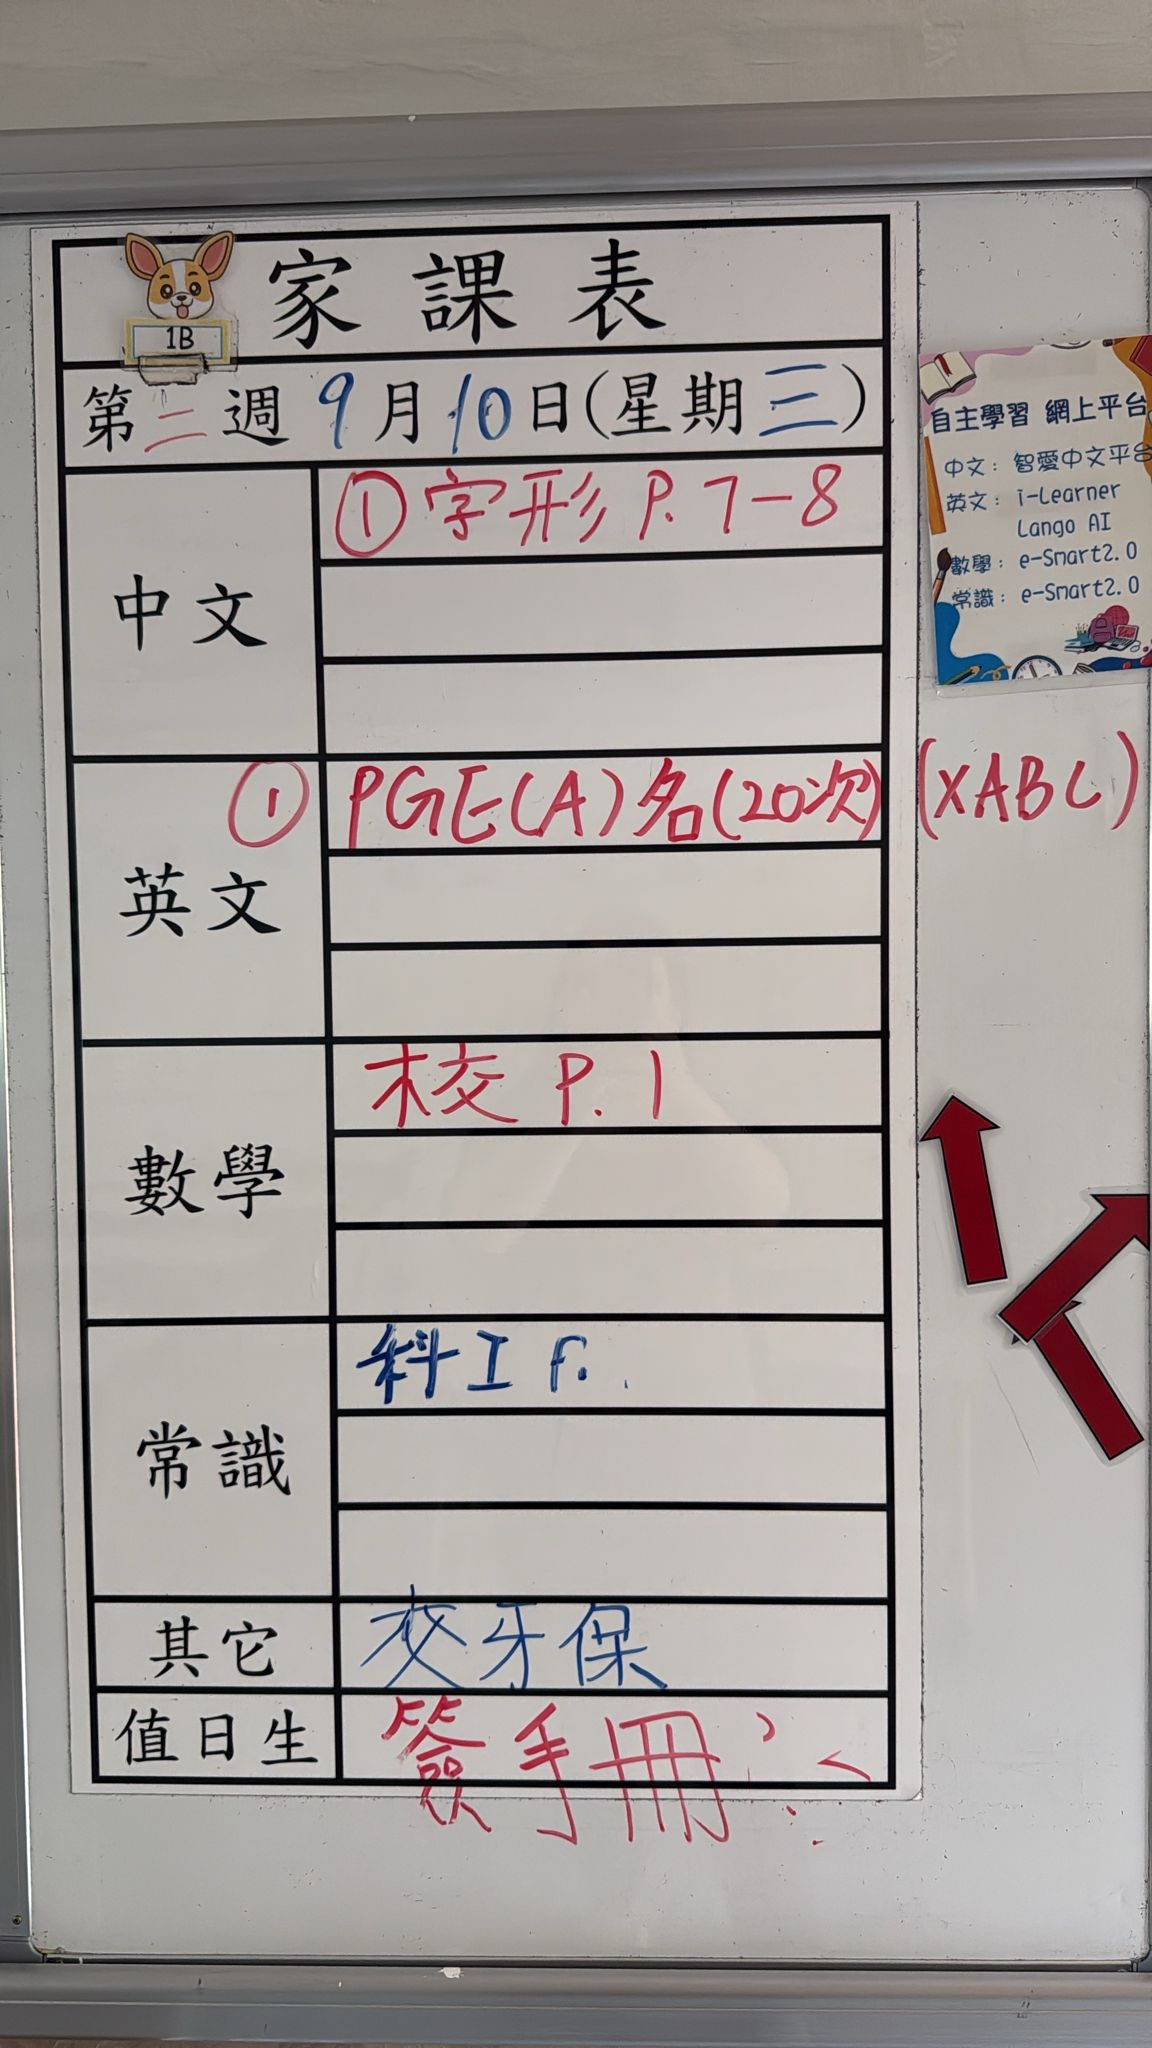 家課表
1B
第二週 9月10日(星期三)
中文
① 字形 P. 7-8
英文
① PGE(A)名(20次) (XABC)
數學
校 P. 1
常識
科工 P.
其它
交牙保
值日生
簽手冊
自主學習 網上平台
中文： 智愛中文平台
英文： i-Learner
Lango AI
數學： e-Smart2.0
常識： e-Smart2.0